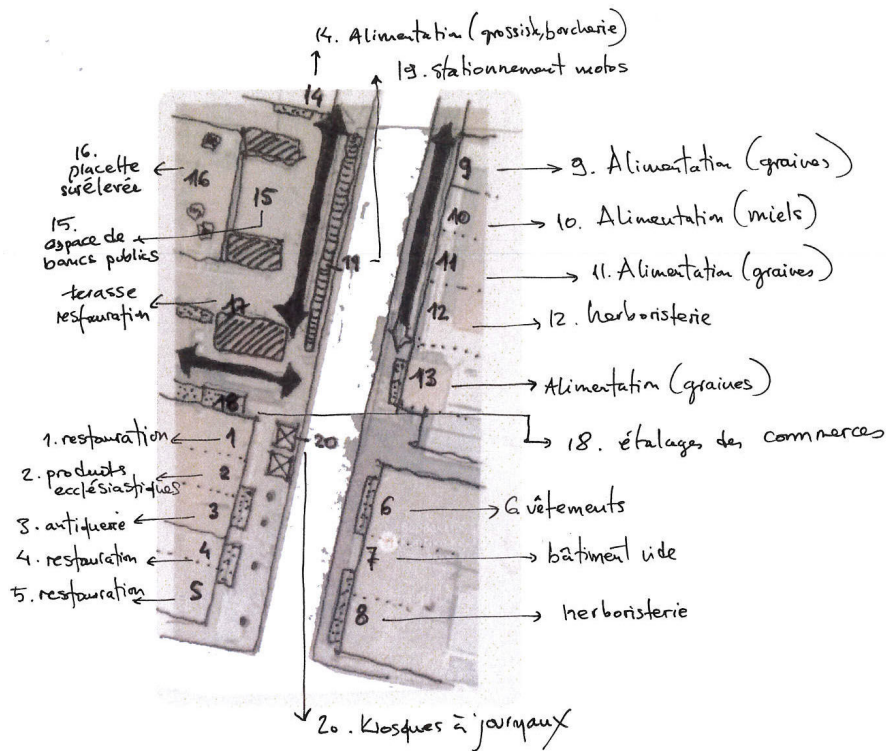 14. Alimentation (grossiste, boucherie)
19. Stationnement motos
14
16.
placette
surélevée
16
15
15.
espace de
bancs publics
terasse
restauration
17
19
9
9. Alimentation (graines)
10
10. Alimentation (miels)
11
11. Alimentation (graines)
12
12. herboristerie
13
Alimentation (graines)
18
18. étalages des commerces
20
1. restauration
1
2. produits
ecclésiastiques
2
3. antiquerie
3
4. restauration
4
5. restauration
5
6
6 vêtements
7
bâtiment vide
8
herboristerie
20. Kiosques à journaux